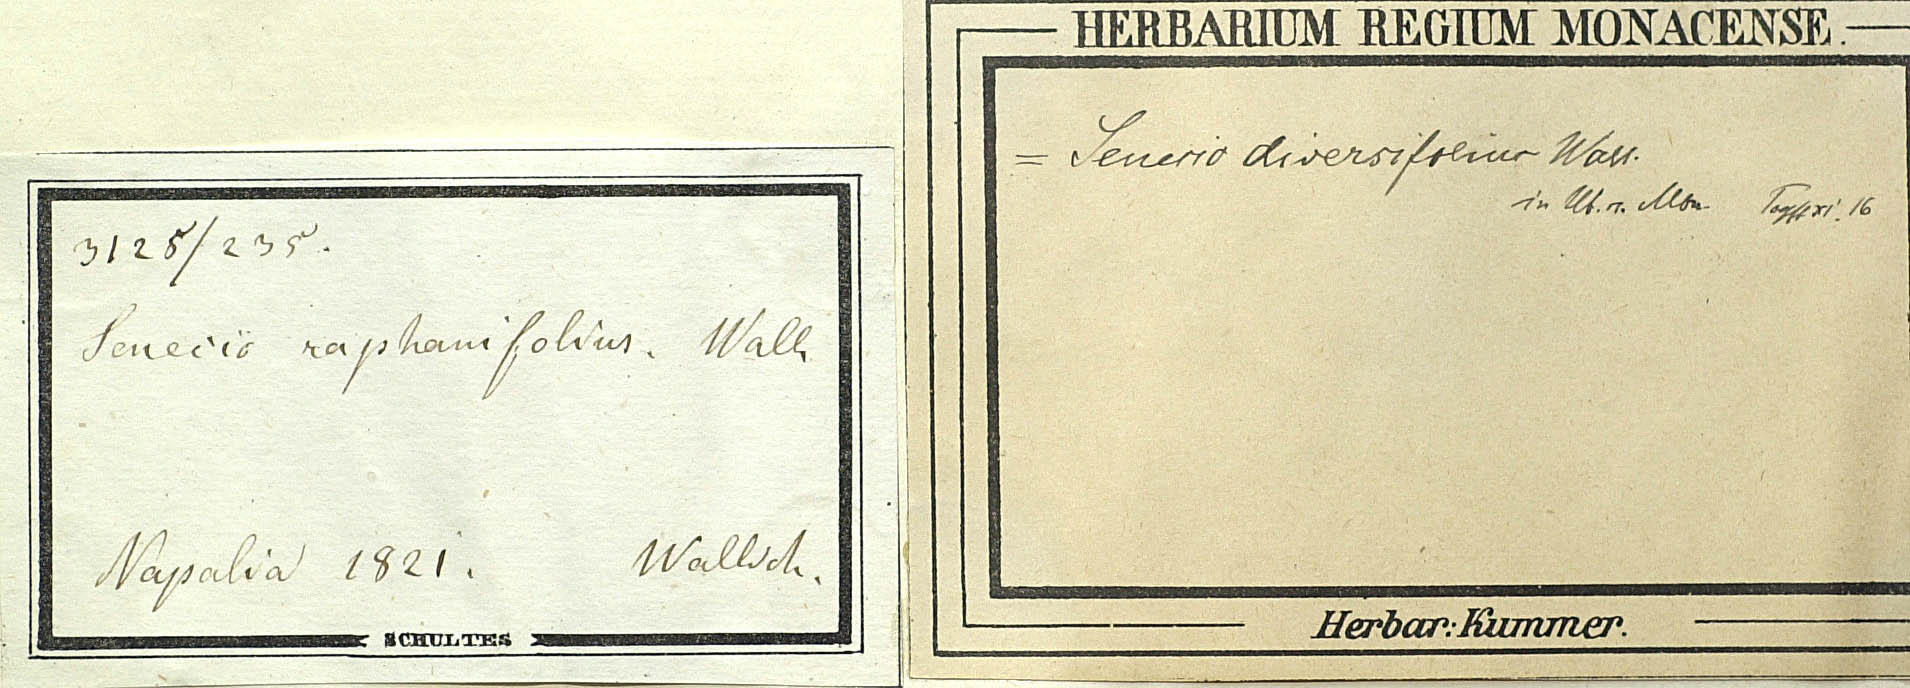 3125/235.
Senecio raphanifolius. Wall.
Napalia 1821. Wallich.
SCHULTES
HERBARIUM REGIUM MONACENSE.
= Senecio diversifolius Wall.
in 16
Herbar: Kummer.